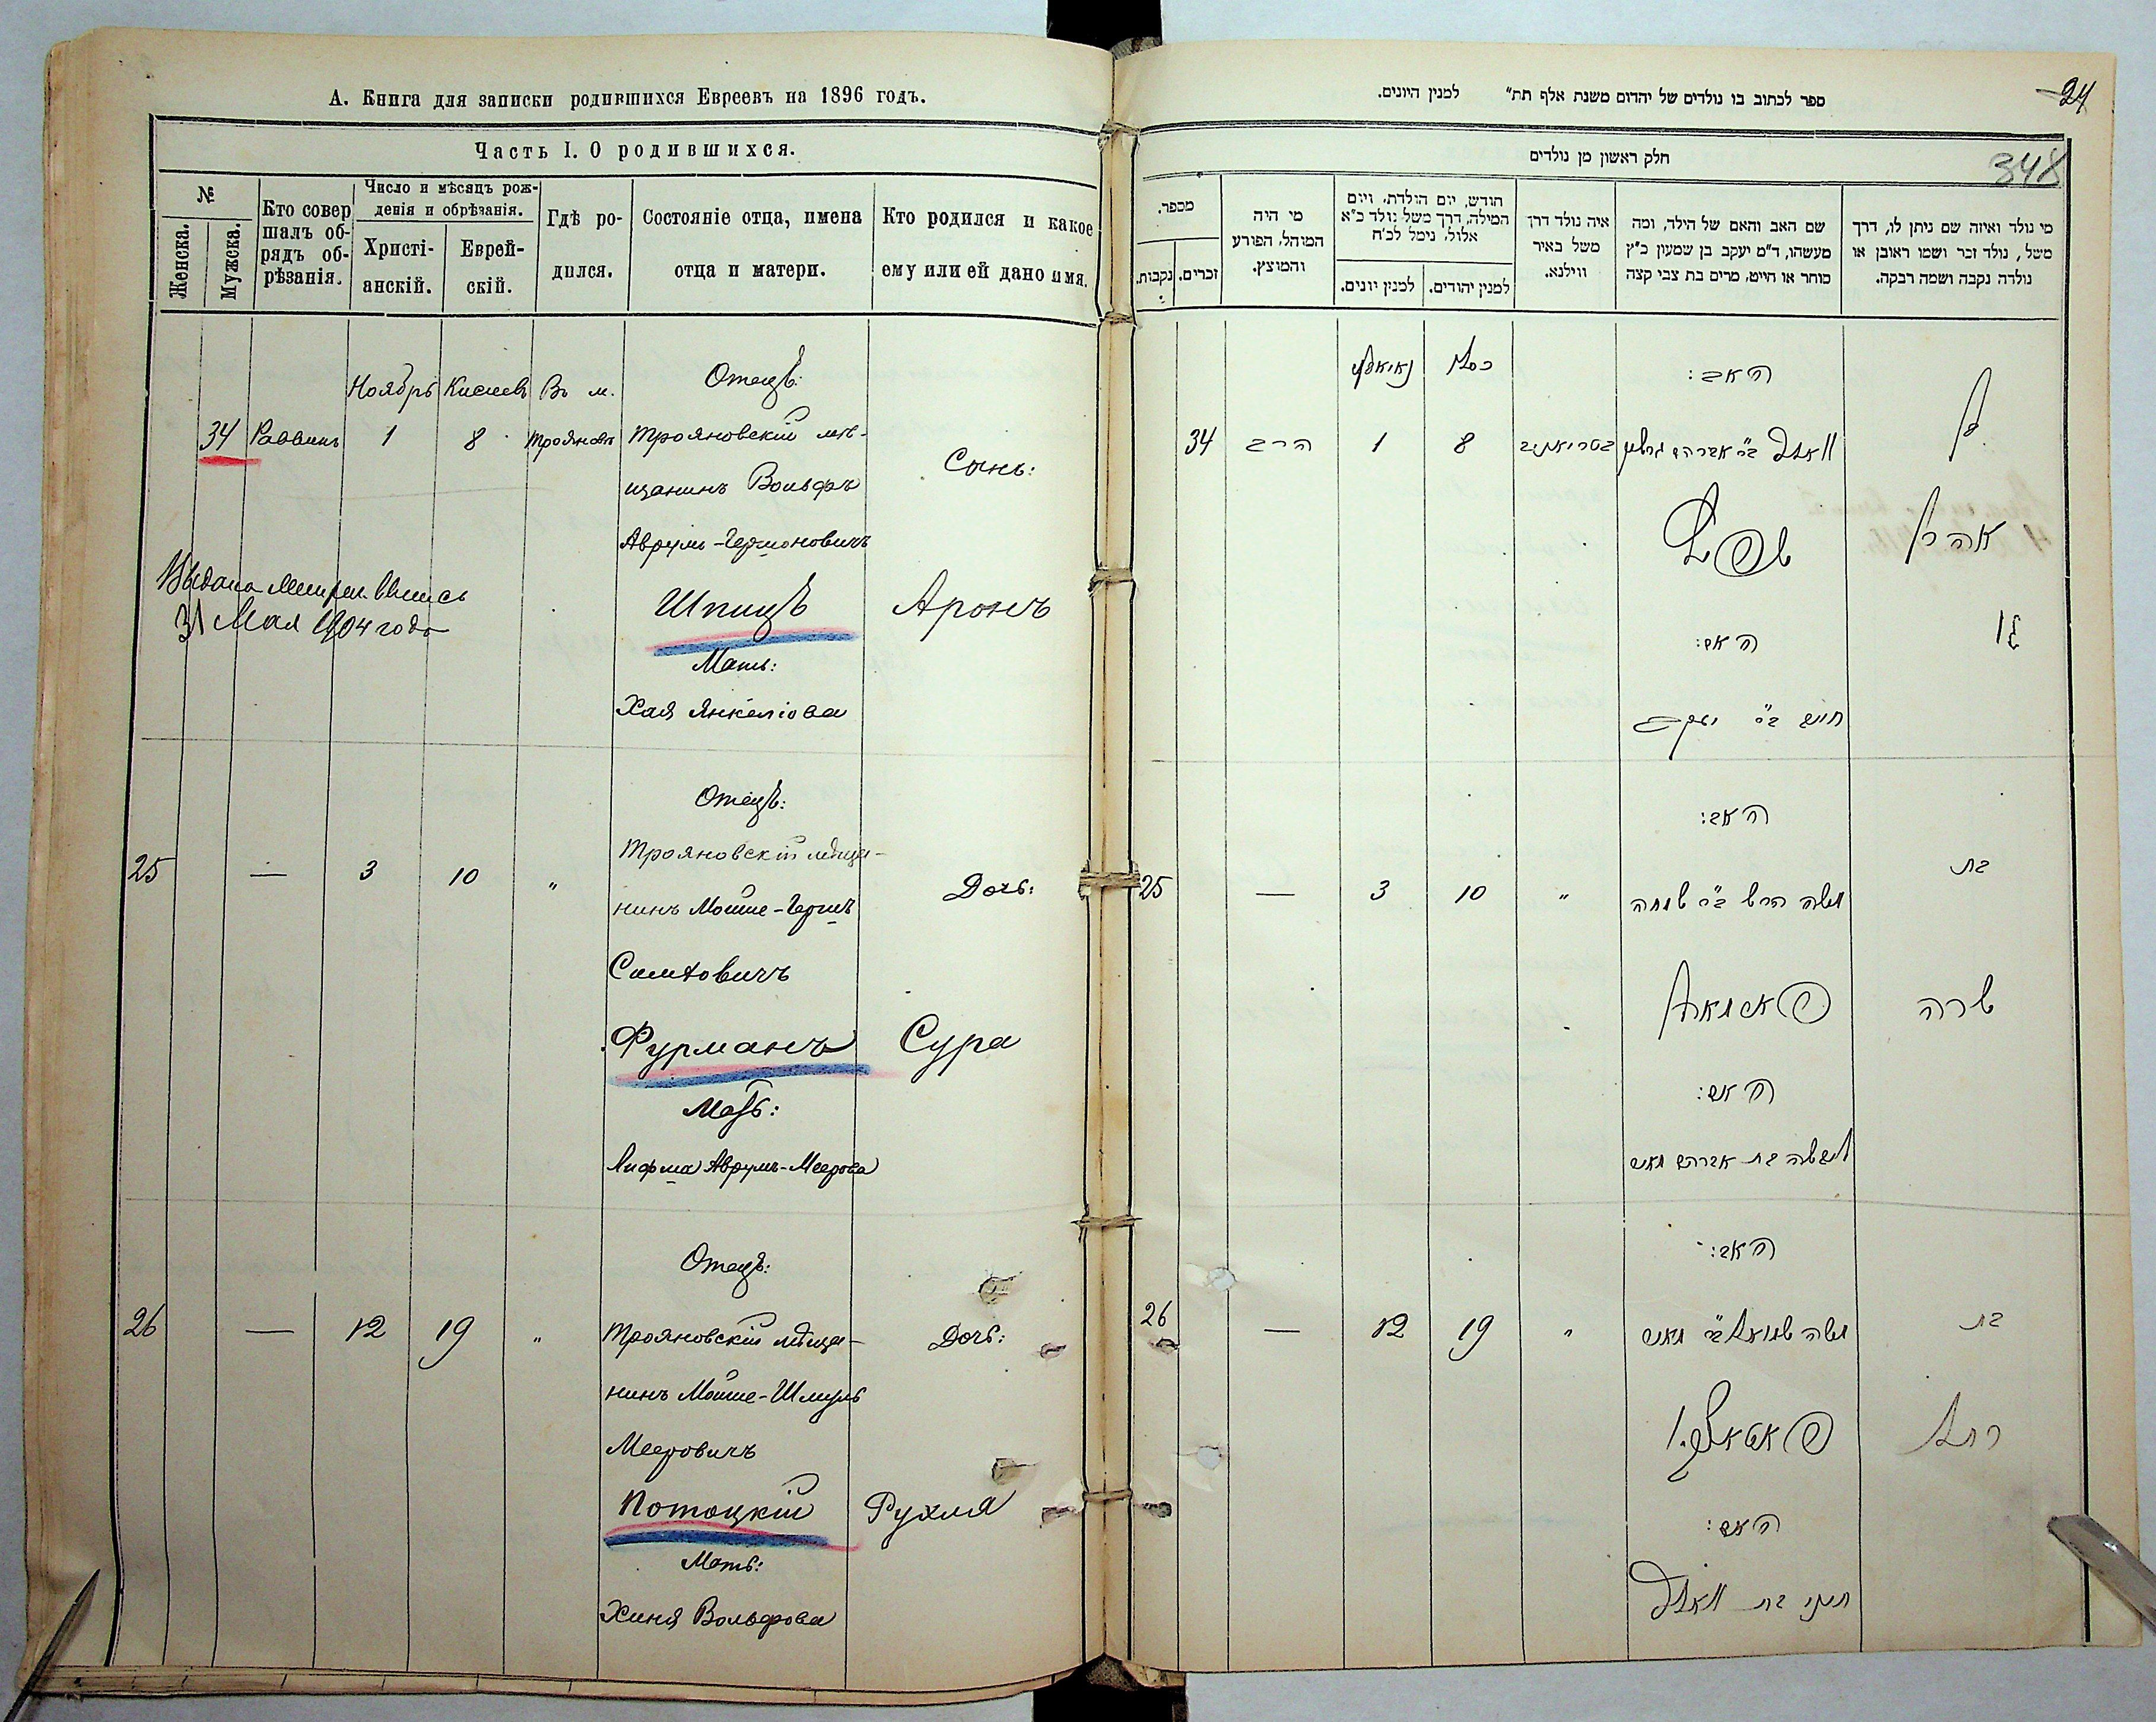 А. Книга для записки родившихся Евреевъ на 1896 годъ.
Часть I. О родившихся.
№
Женска.
Мужска.
Кто совер
шалъ об-
рядъ об-
рѣзанія.
Число и мѣсяцъ рож-
денія и обрѣзанія.
Христі-
анскій.
Еврей-
скій.
Гдѣ ро-
дился.
Состояніе отца, имена
отца и матери.
Кто родился и какое
ему или ей дано имя.
Ноябрь Кислевъ Въ м.
Отецъ:
34 Раввинъ 1 8 Трояновъ Трояновскій мѣ-
щанинъ Вольфъ
Сынъ:
Аврумъ-Гершоновичъ
Шпицъ
Аронъ
Мать:
Хая Янкеліова
Выдана
31 Мая 1904 года
Отецъ:
25 — 3 10 " Трояновскій мѣща-
нинъ Мойше-Гершъ
Дочь:
Симховичъ
Фурманъ
Сура
Мать:
Лифша Аврумъ-Меерова
Отецъ:
26 — 12 19 " Трояновскій мѣща-
Дочь:
нинъ Мойше-Шмуль
Мееровичъ
Потоцкій
Рухля
Мать:
Хиня Вольфова
24
348
ספר לכתוב בו נולדים של יהדום משנת אלף תת״ למנין היונים.
חלק ראשון מן נולדים
מי נולד ואיזה שם ניתן לו, דרך
משל, נולד זכר ושמו ראובן או
נולדה נקבה ושמה רבקה.
שם האב והאם של הילד, ומה
מעשהו, ד״מ יעקב בן שמעון כ״ץ
סוחר או חייט, מרים בת צבי קצה
איה נולד דרך
משל באיר
ווילנא.
חודש, יום הולדת, ויום
המילה, דרך משל נולד כ״א
אלול, נימל לכ״ח
למנין יהודים.
למנין יונים.
מי היה
המוהל, הפורע
והמוצץ.
מספר.
זכרים.
נקבות.
כסלו
האב:
בן
34 הרב 1 8
וואלף ב״ר אברהם גרשון
שפיץ
אהרן
האם:
חיה ב״ר יעקב
האב:
בת
25 — 3 10 "
משה הרש ב״ר שמחה
שרה
האם:
ליפשה בת אברהם מאיר
האב:
בת
26 — 12 19 "
משה שמואל ב״ר מאיר
פאטאצקי
רחל
האם:
חיני בת וואלף